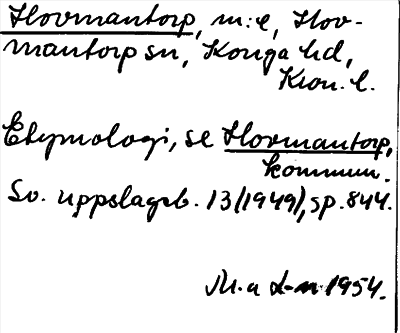 Hovmantorp, m:e, Hov-
mantorp sn, Konga hd,
Kron. l.
Etymologi, se Hovmantorp,
kommun.
Sv. uppslagsb. 13(1949), sp. 844.
M. a L-m 1954.